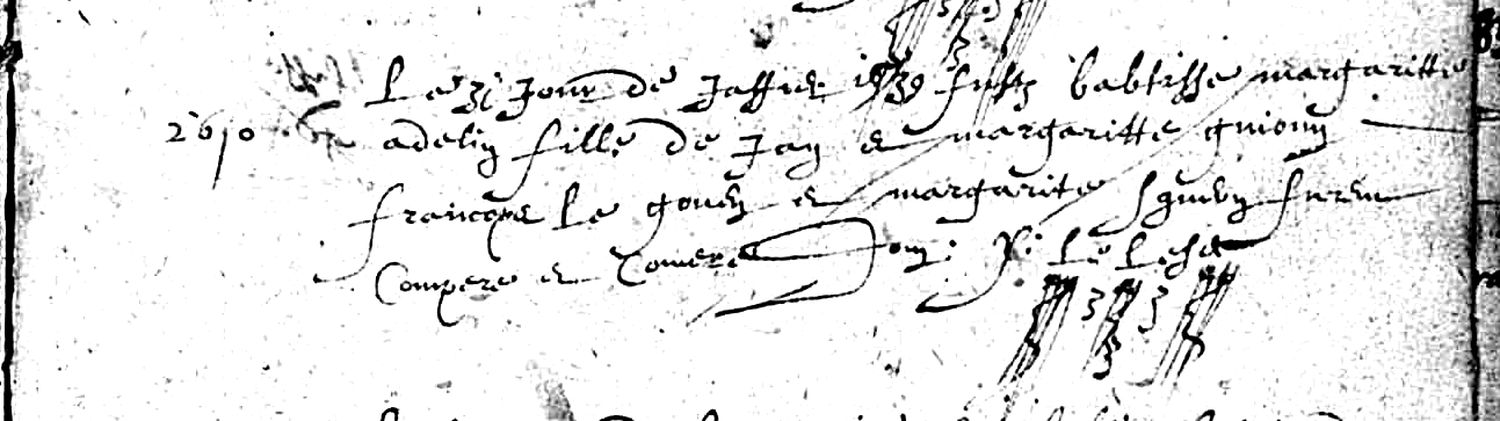 Le 31 Jour de Jaffuier 1639 fust babtisse margaritte
2610 adelin fille de Jan et margaritte guionn
françoys Le gouen et margarite furent
Compere et Comere Dom: Le